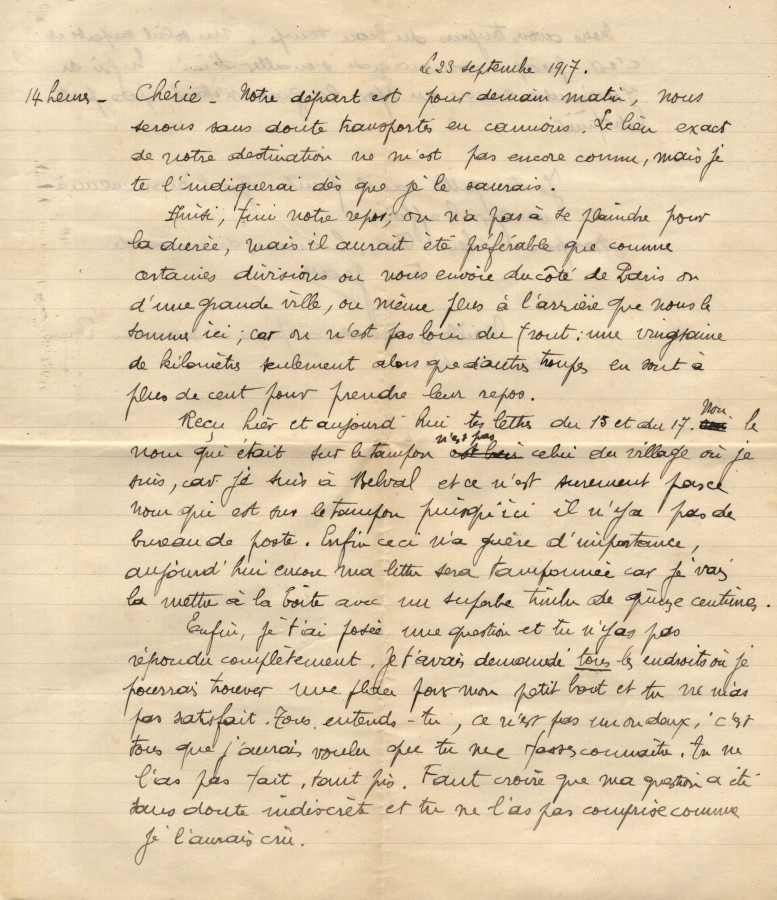 Le 23 septembre 1917.
14 heures - Chérie - Notre départ est pour demain matin, nous
serons sans doute transportés en camions. Le lieu exact
de notre destination ne m'est pas encore connu, mais je
te l'indiquerai dès que je le saurais.
Ainsi, fini notre repos; on n'a pas à se plaindre pour
la durée, mais il aurait été préférable que comme
certaines divisions on nous envoie du côté de Paris ou
d'une grande ville, ou même plus à l'arrière que nous le
sommes ici; car on n'est pas loin du front: une vingtaine
de kilomètres seulement alors que d'autres troupes en sont à
plus de cent pour prendre leur repos.
Reçu hier et aujourd'hui tes lettres du 15 et du 17. Non le
nom qui était sur le tampon n'est pas celui du village où je
suis, car je suis à Belval et ce n'est surement pas ce
nom qui est sur le tampon puisqu'ici il n'y a pas de
bureau de poste. Enfin ceci n'a guère d'importance,
aujourd'hui encore ma lettre sera tamponnée car je vais
la mettre à la boîte avec un superbe timbre de quinze centimes.
Enfin, je t'ai posée une question et tu n'y as pas
répondu complètement. Je t'avais demandé tous les endroits où je
pourrais trouver une place pour mon petit bout et tu ne m'as
pas satisfait. Tous, entends-tu, ce n'est pas un ou deux, c'est
tous que j'aurais voulu que tu me fasses connaître. Tu ne
l'as pas fait, tant pis. Faut croire que ma question a été
sans doute indiscrète et tu ne l'as pas comprise comme
je l'aurais crû.